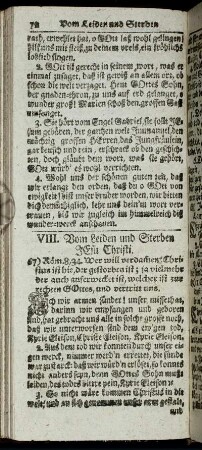 72 Vom Leiden und Sterben
nach, erwehlet hat, o GOtt laß wohl gelingen:
hilf uns mit fleiß, zu deinem preis, ein fröhlich's
loblied singen.
2. GOtt ist gerecht in seinem wort, was er
einmal zusaget, daß ist gewiß an allem ort, ob
schon die welt verzaget. Dem GOttes Sohn,
der gnaden-thron, zu uns auf erd gelanget,
wunder groß! Marien schoß den grossen Gast
umfanget.
3. Sie hört vom Engel Gabriel, sie solle
gebähren, der gantzen welt Immanuel, den
mächtig grossen HErren, das Jungfräulein,
gar keusch und rein, erschrak ob den geschichten,
doch glaubt dem wort, was sie gehört,
GOtt würd' es wohl verrichten.
4. Wohl uns der schönen guten zeit, daß
wir erlangt den orden, daß du o GOtt von
ewigkeit
bis wir zugleich im himmelreich dich
wunder-werck anschauen.
VIII. Vom Leiden und Sterben
JEsu Christi.
67) Röm. 8, 34. Wer will verdammen? Christus
ist hie, der gestorben ist; ja vielmehr
der auch auferwecket ist, welcher ist zur
rechten GOttes, und vertritt uns.
Ach wir armen sünder! unser missethat,
darinn wir empfangen und gebohren
sind, hat gebracht uns alle in solche grosse noth,
daß wir unterworfen sind dem ew'gen tod,
Kyrie Eleison, Christe Eleison, Kyrie Eleison.
2. Aus dem tod wir konnten durch unser eigen
werck, nimmer werd'n errettet, die sünde
war zu starck: daß wir würd'n erlöset, so konnts
nicht anders seyn, denn GOttes Sohn mußt
leiden, des todes bittre pein, Kyrie Eleison
3. So nicht wäre kommen Christus in die
welt, und an sich genommen unser arm gestalt,
und